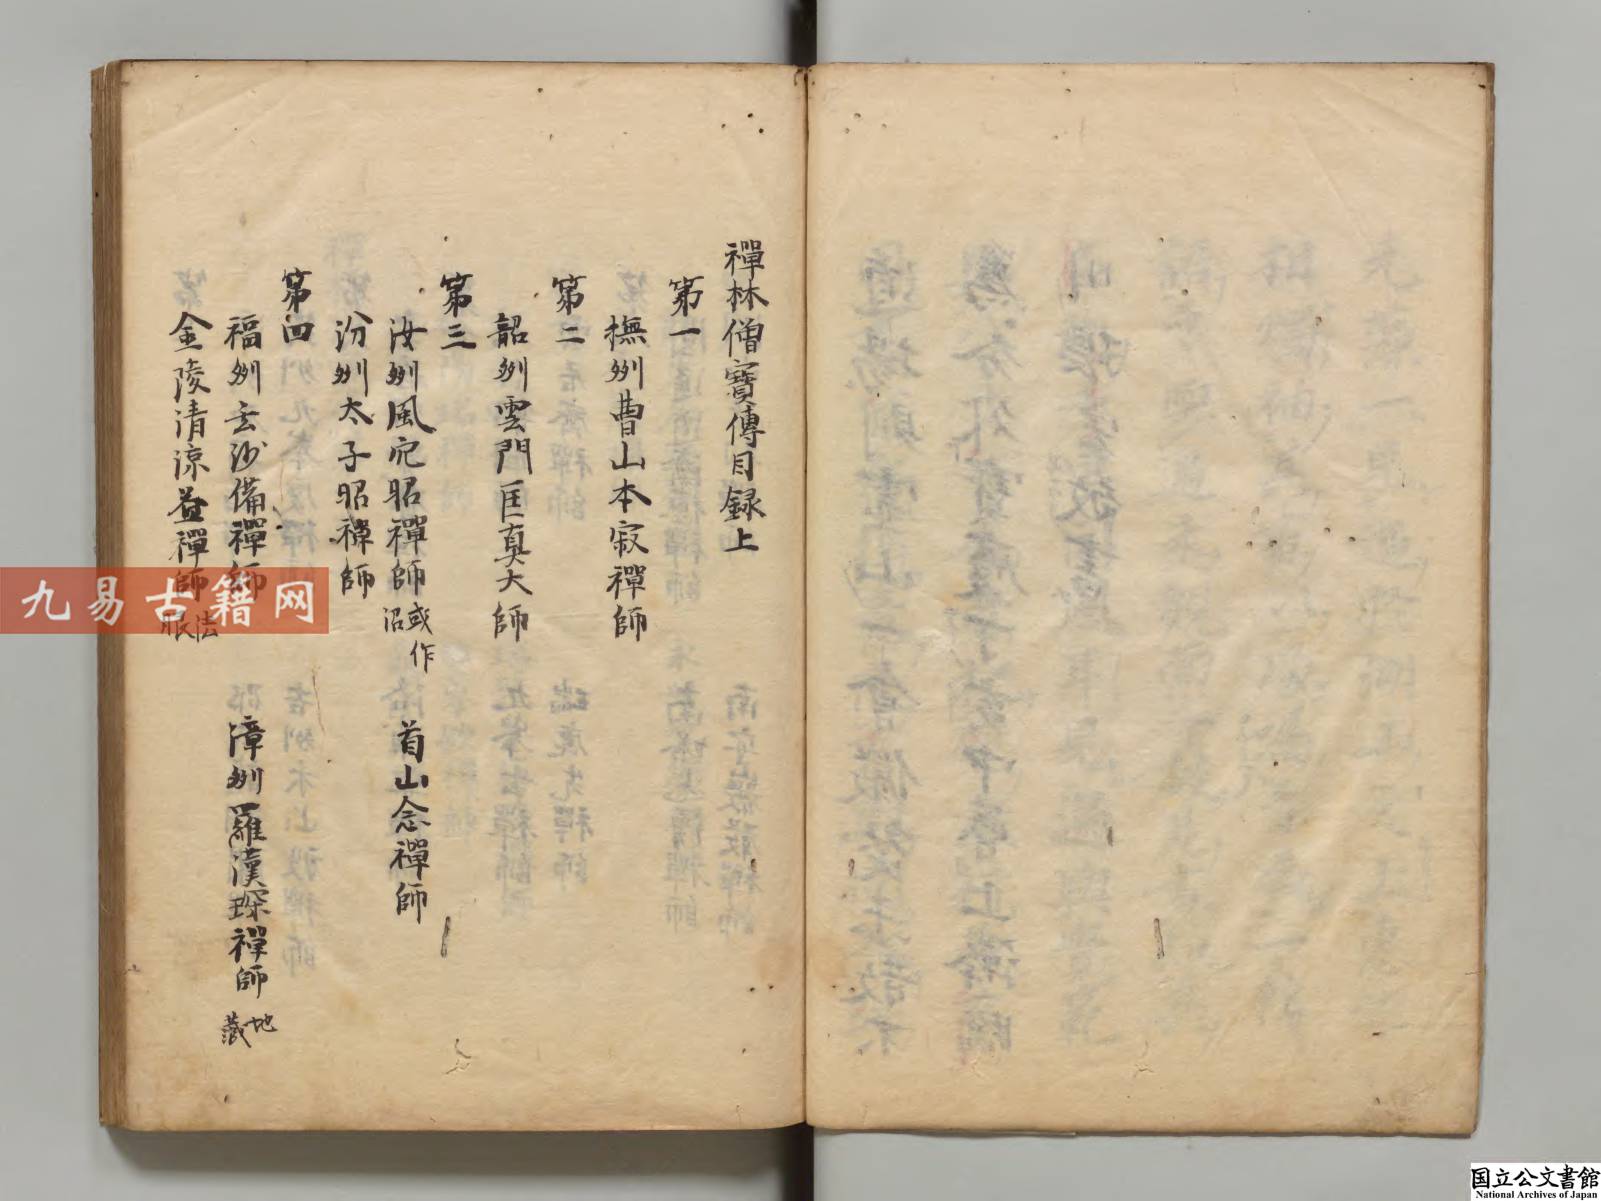 禪林僧寶傳目録上
第一
撫州曹山本寂禪師
第二
韶州雲門匡真大師
第三
汝州風穴昭禪師 或作沼 首山念禪師
汾州太子昭禪師
第四
福州玄沙備禪師 漳州羅漢琛禪師 地藏
金陵清涼益禪師 法眼
九易古籍网
国立公文書館
National Archives of Japan